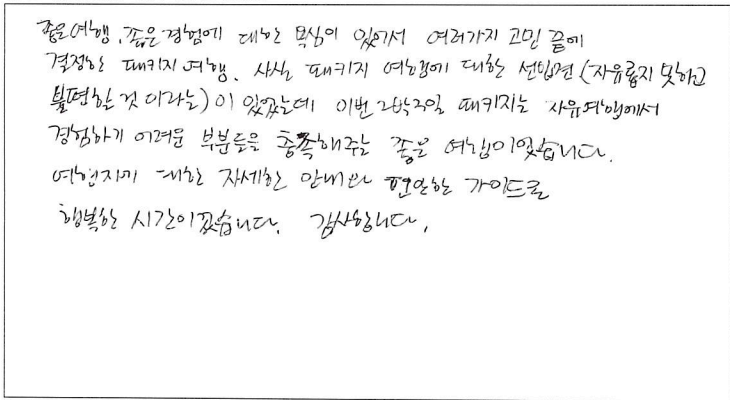 좋은여행, 좋은경험에 대한 욕심이 있어서 여러가지 고민 끝에
결정한 패키지 여행. 사실 패키지 여행에 대한 선입견 (자유롭지 못하고
불편할 것 이라는)이 있었는데 이번 2박3일 패키지는 자유여행에서
경험하기 어려운 부분들을 충족해주는 좋은 여행이었습니다.
여행지에 대한 자세한 안내와 편안한 가이드로
행복한 시간이었습니다. 감사합니다.